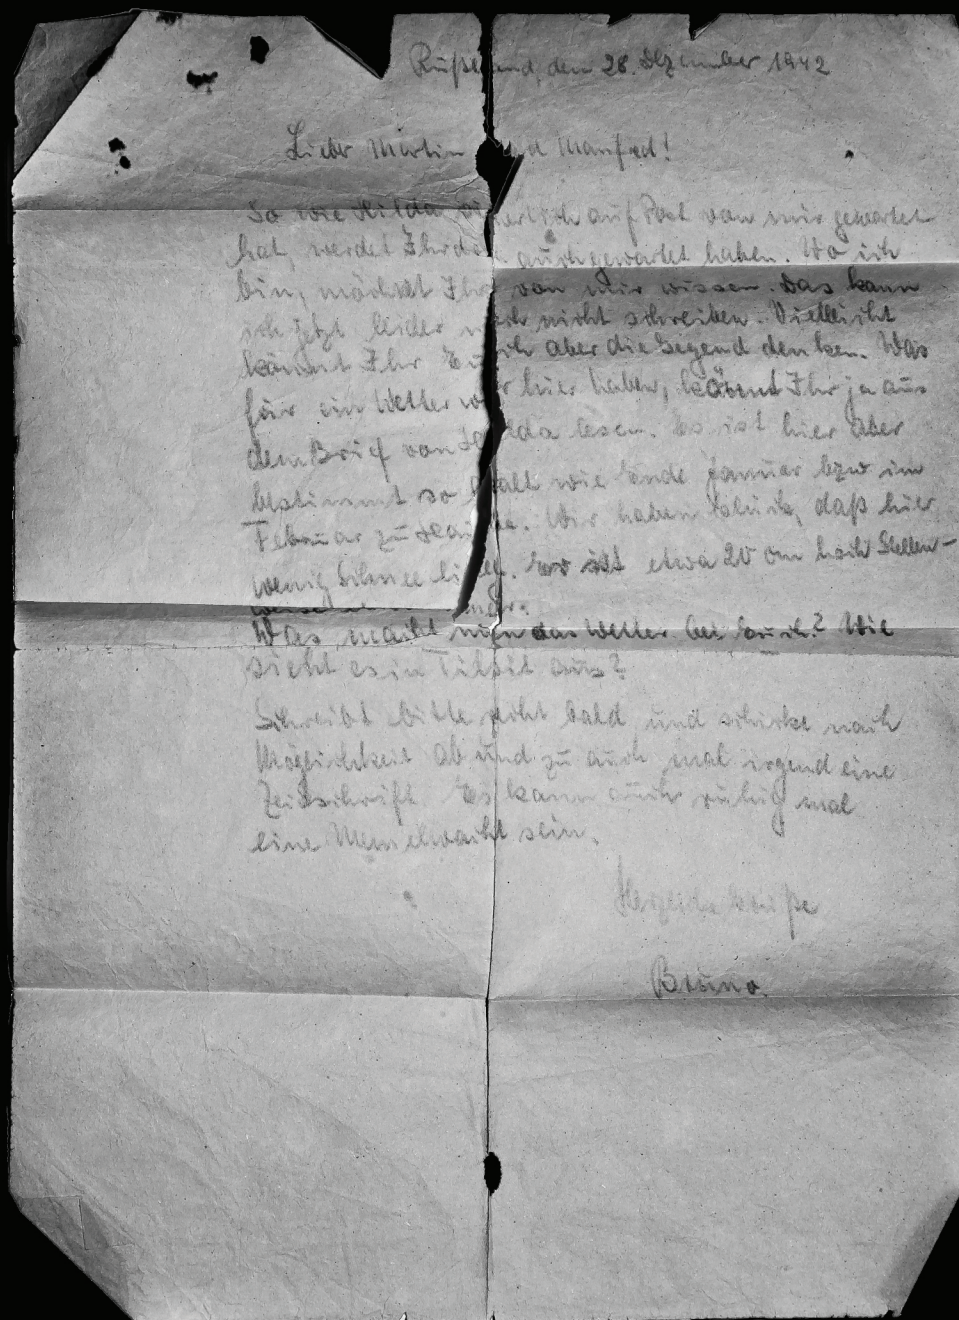 Rußland, den 28. Dezember 1942
Lieber Martin und Manfred!
So wie Hilda sicherlich auf Post von mir gewartet
hat, werdet Ihr doch auch gewartet haben. Wo ich
bin, möchtet Ihr von mir wissen. Das kann
ich jetzt leider noch nicht schreiben. Vielleicht
könnt Ihr Euch aber die Gegend denken. Was
für ein Wetter wir hier haben, könnt Ihr ja aus
dem Brief von Hilda lesen. Es ist hier aber
bestimmt so kalt wie Ende Januar bzw im
Februar zu Hause. Wir haben Glück, daß hier
wenig Schnee liegt. Es ist etwa 20 cm hoch Stellen-
weise mehr.
Was macht nun das Wetter bei Euch? Wie
sieht es in Tilsit aus?
Schreibt bitte recht bald und schickt nach
Möglichkeit ab und zu auch mal irgend eine
Zeitschrift. Es kann auch ruhig mal
eine Memelwacht sein.
Herzliche Grüße
Bruno.